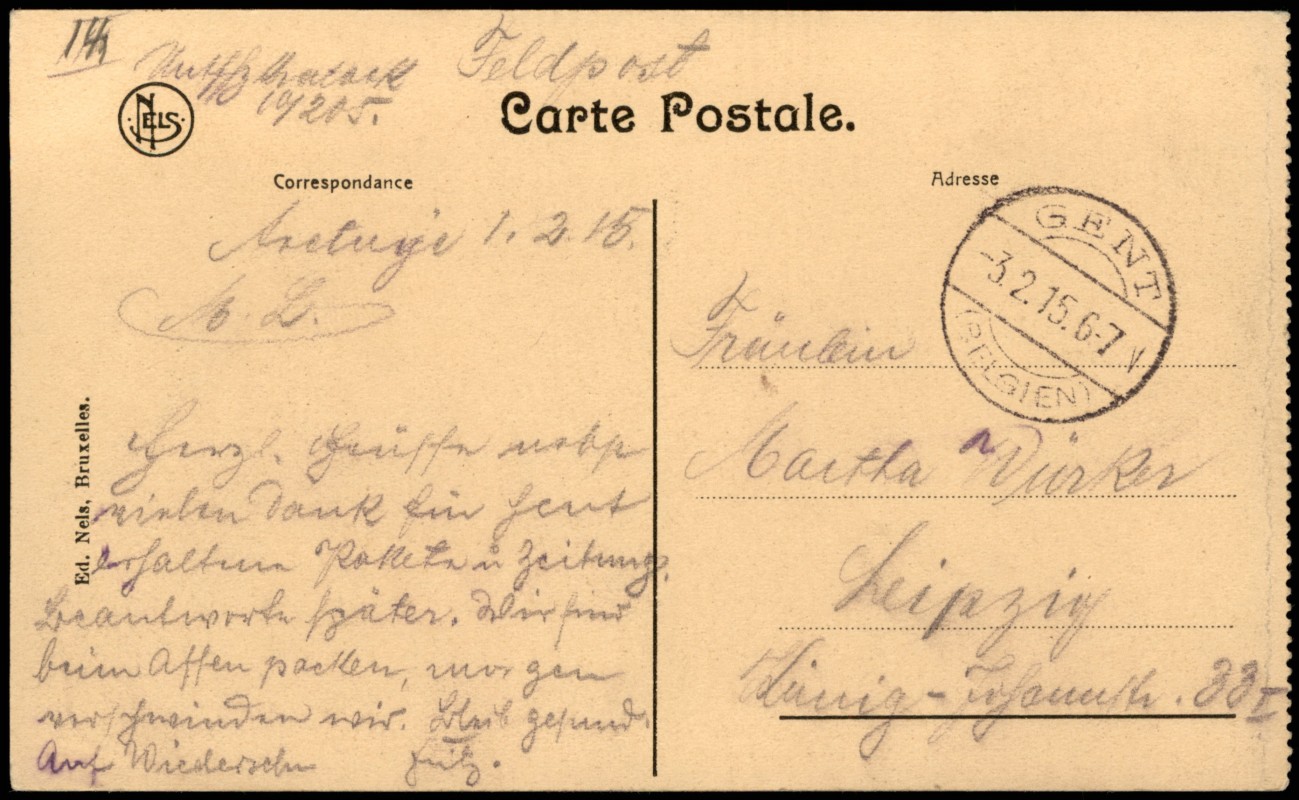 Feldpost
10/205.
NELS
Carte Postale.
Correspondance
1. 2. 15.
M. L.
Herzl. Grüsse nebst
vielen Dank für heut
erhaltene Pakete u Zeitung.
Beantworte später. Wir sind
beim Affen packen, morgen
verschwinden wir. Bleib gesund.
Auf Wiedersehn Fritz.
Ed. Nels, Bruxelles.
Adresse
GENT
-3.2.15.6-7 V
(BELGIEN)
Fräulein
Martha Dürker
Leipzig
König-Johannstr. 33 I